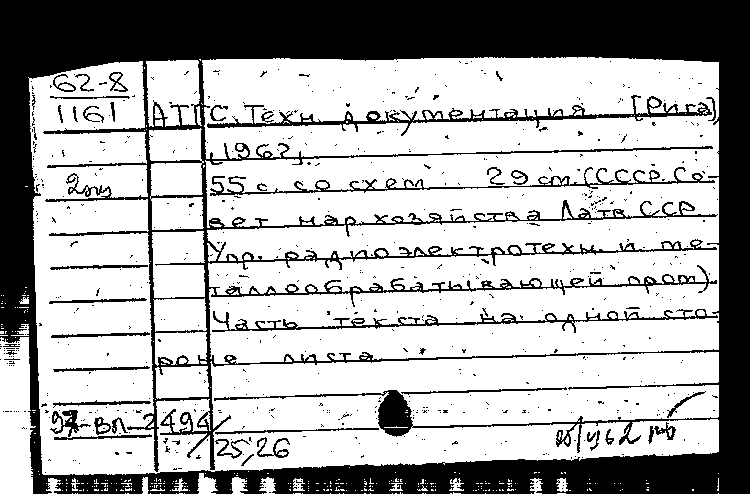 62-8
1161 АТПС. Техн. документация [Рига]
[196?].
2 экз 55 с. со схем 29 cm. (СССР. Со-
вет нар. хозяйства Латв. ССР
Упр. радиоэлектротехн. и ме-
таллообрабатывающей пром.)
Часть текста на одной сто-
роне листа
97-вл-2494/
25,26